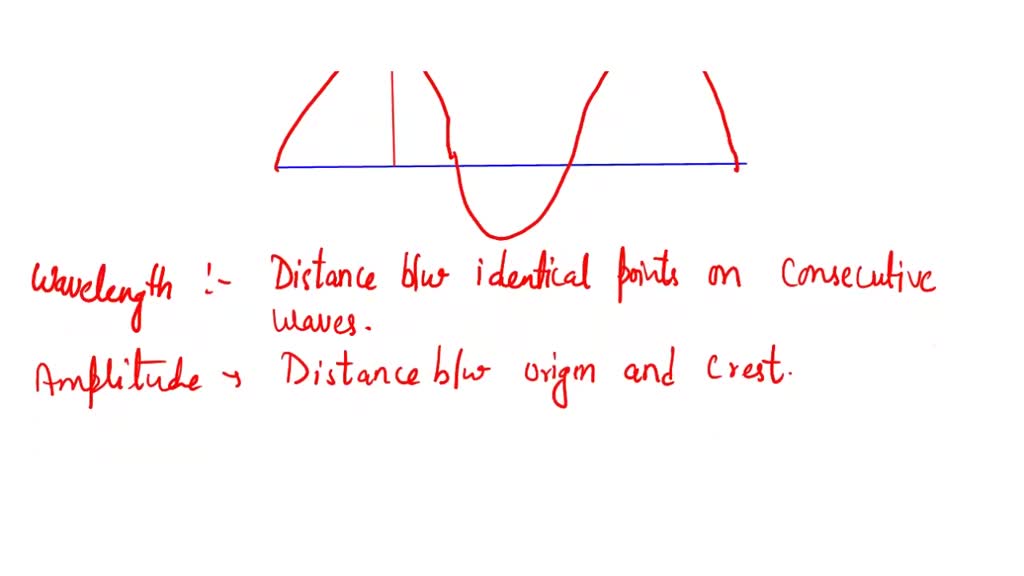 Wavelength :- Distance b/w identical points on consecutive
waves.
Amplitude → Distance b/w origin and crest.